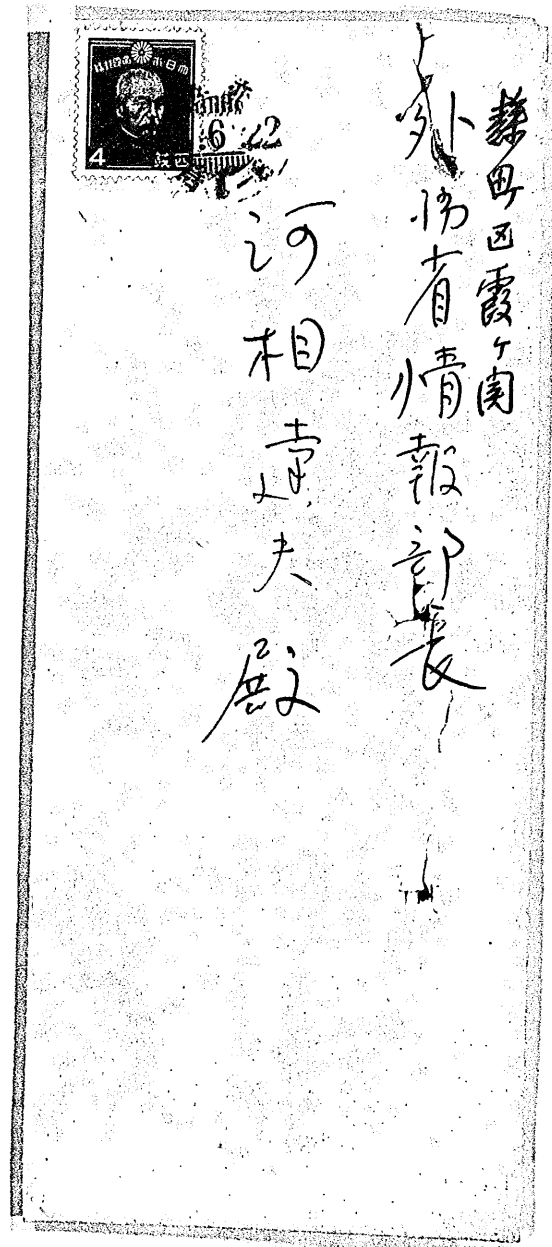 麹町区霞ヶ関
外務省情報部長
河相達夫殿
大日本帝国郵便
4 四銭
6